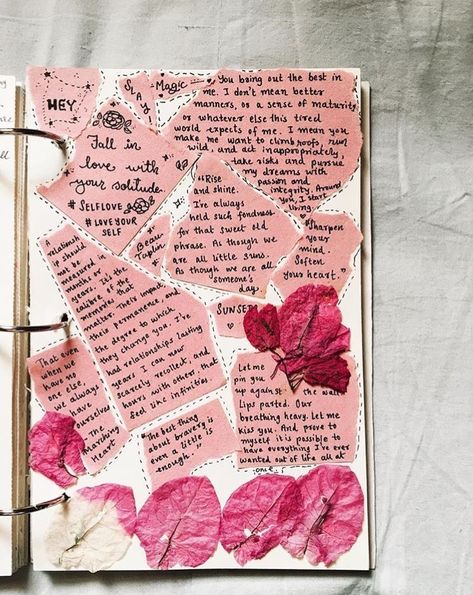 HEY,
SLAY
Magic
Fall in
love with
your solitude.
#SELFLOVE
#LOVE YOUR
SELF
You bring out the best in
me. I don't mean better
manners, or a sense of maturity
or whatever else this tired
world expects of me. I mean you
make me want to climb roofs, run
wild, and act inappropriately,
take risks and pursue
my dreams with
passion and
integrity. Around
you, I start
living.
"Rise
and shine.
I've always
held such fondness
for that sweet old
phrase. As though we
are all little suns.
As though we are all
someone's
day.
Beau
Taplin
"Sharpen
your
mind.
Soften
your heart."
A
relationsh
ip should
not be
measured in
months or
years. It's the
calibre of the
memories that
matter. Their impact,
their permanence, and
the degree to which
they change you. I've
had relationships lasting
years I can now
scarcely recollect, and
hours with others, that
feel like infinities
SUNSET
That even
when we
have no
one else,
we always
have
ourselves
and
Marching
Heart
Let me
pin you
up against the wall
Lips parted. Our
breathing heavy. Let me
kiss you. And prove to
myself it is possible to
have everything I've ever
wanted out of life all at
once.
"The best thing
about bravery is
even a little is
enough."